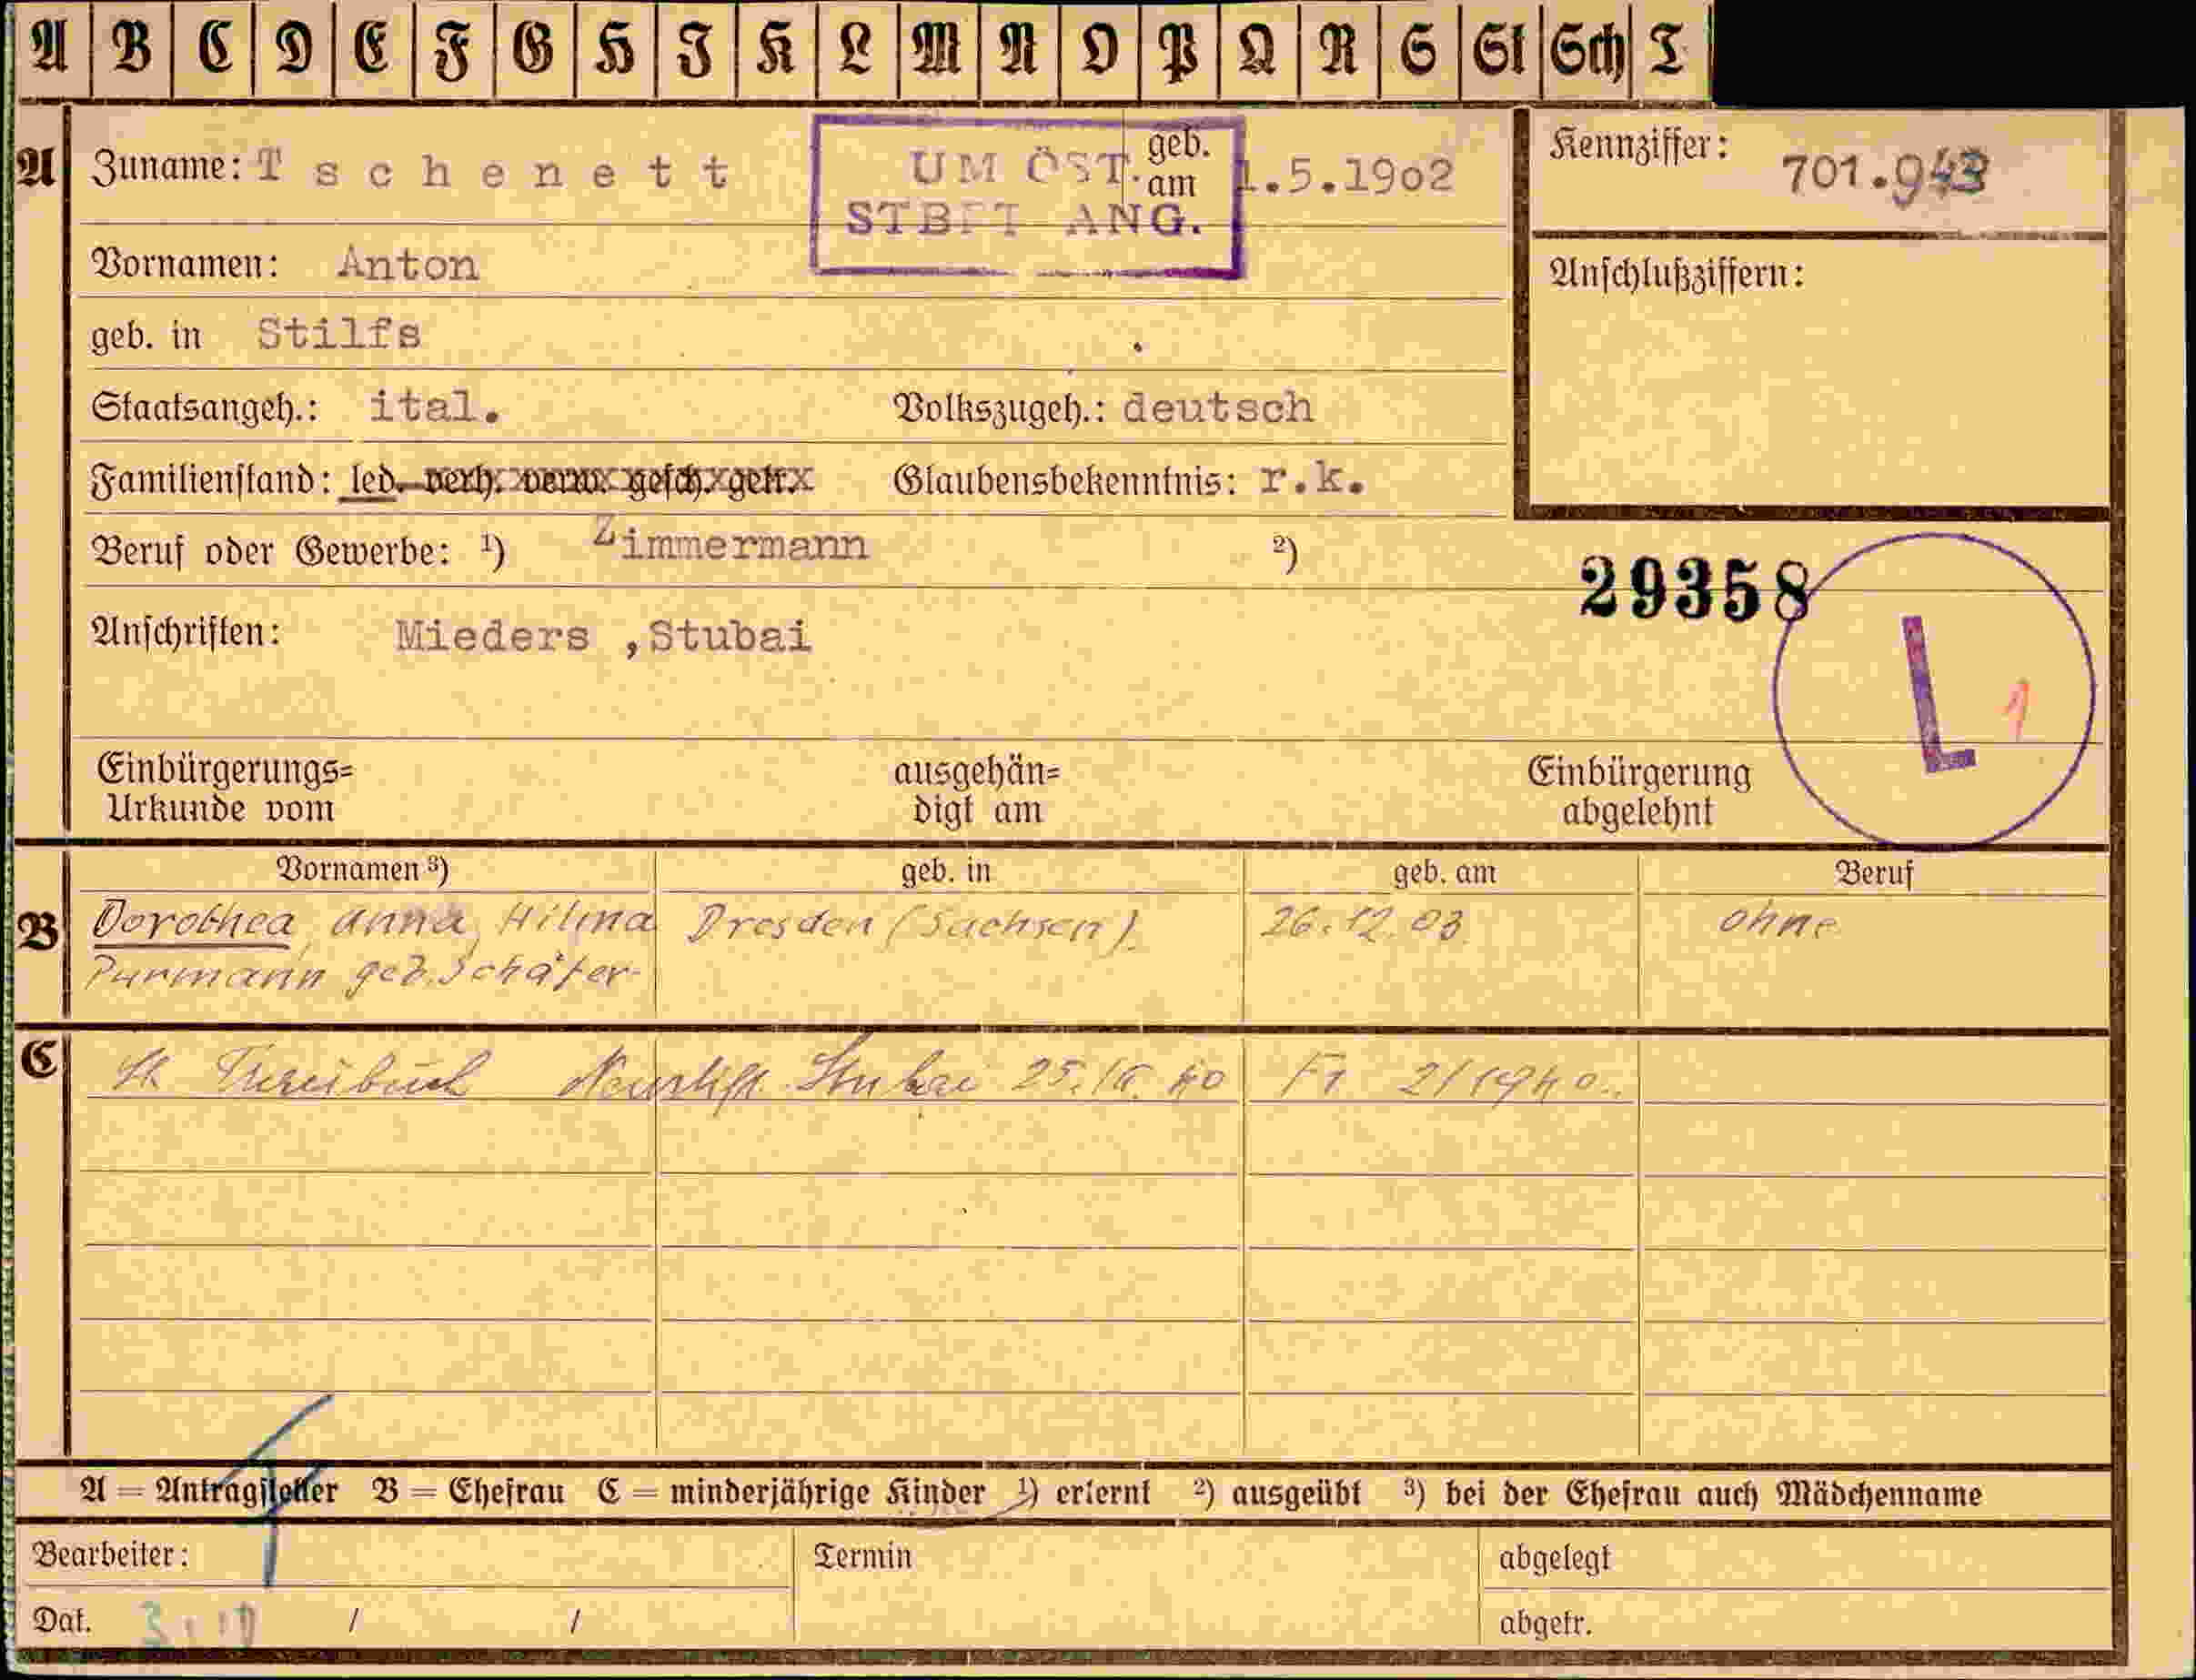 A B C D E F G H I K L M N O P Q R S St Sch T
A Zuname: Tschenett geb. am 1.5.1902 Kennziffer: 701.943
UM ÖST.
STBFT ANG.
Vornamen: Anton Anschlußziffern:
geb. in Stilfs
Staatsangeh.: ital. Volkszugeh.: deutsch
Familienstand: led. verh. verw. gesch. getr. Glaubensbekenntnis: r.k.
Beruf oder Gewerbe: ¹) Zimmermann ²)
29358
Anschriften: Mieders ,Stubai
L 1
Einbürgerungs= ausgehän= Einbürgerung
Urkunde vom digt am abgelehnt
Vornamen ³) geb. in geb. am Beruf
B Dorothea Anna, Hilma Dresden (Sachsen). 26.12.03. ohne
Purmann geb. Schäfer
C Neustift Stubai 2/1940.
A = Antragsteller B = Ehefrau C = minderjährige Kinder ¹) erlernt ²) ausgeübt ³) bei der Ehefrau auch Mädchenname
Bearbeiter: Termin abgelegt
Dat. / / abgetr.